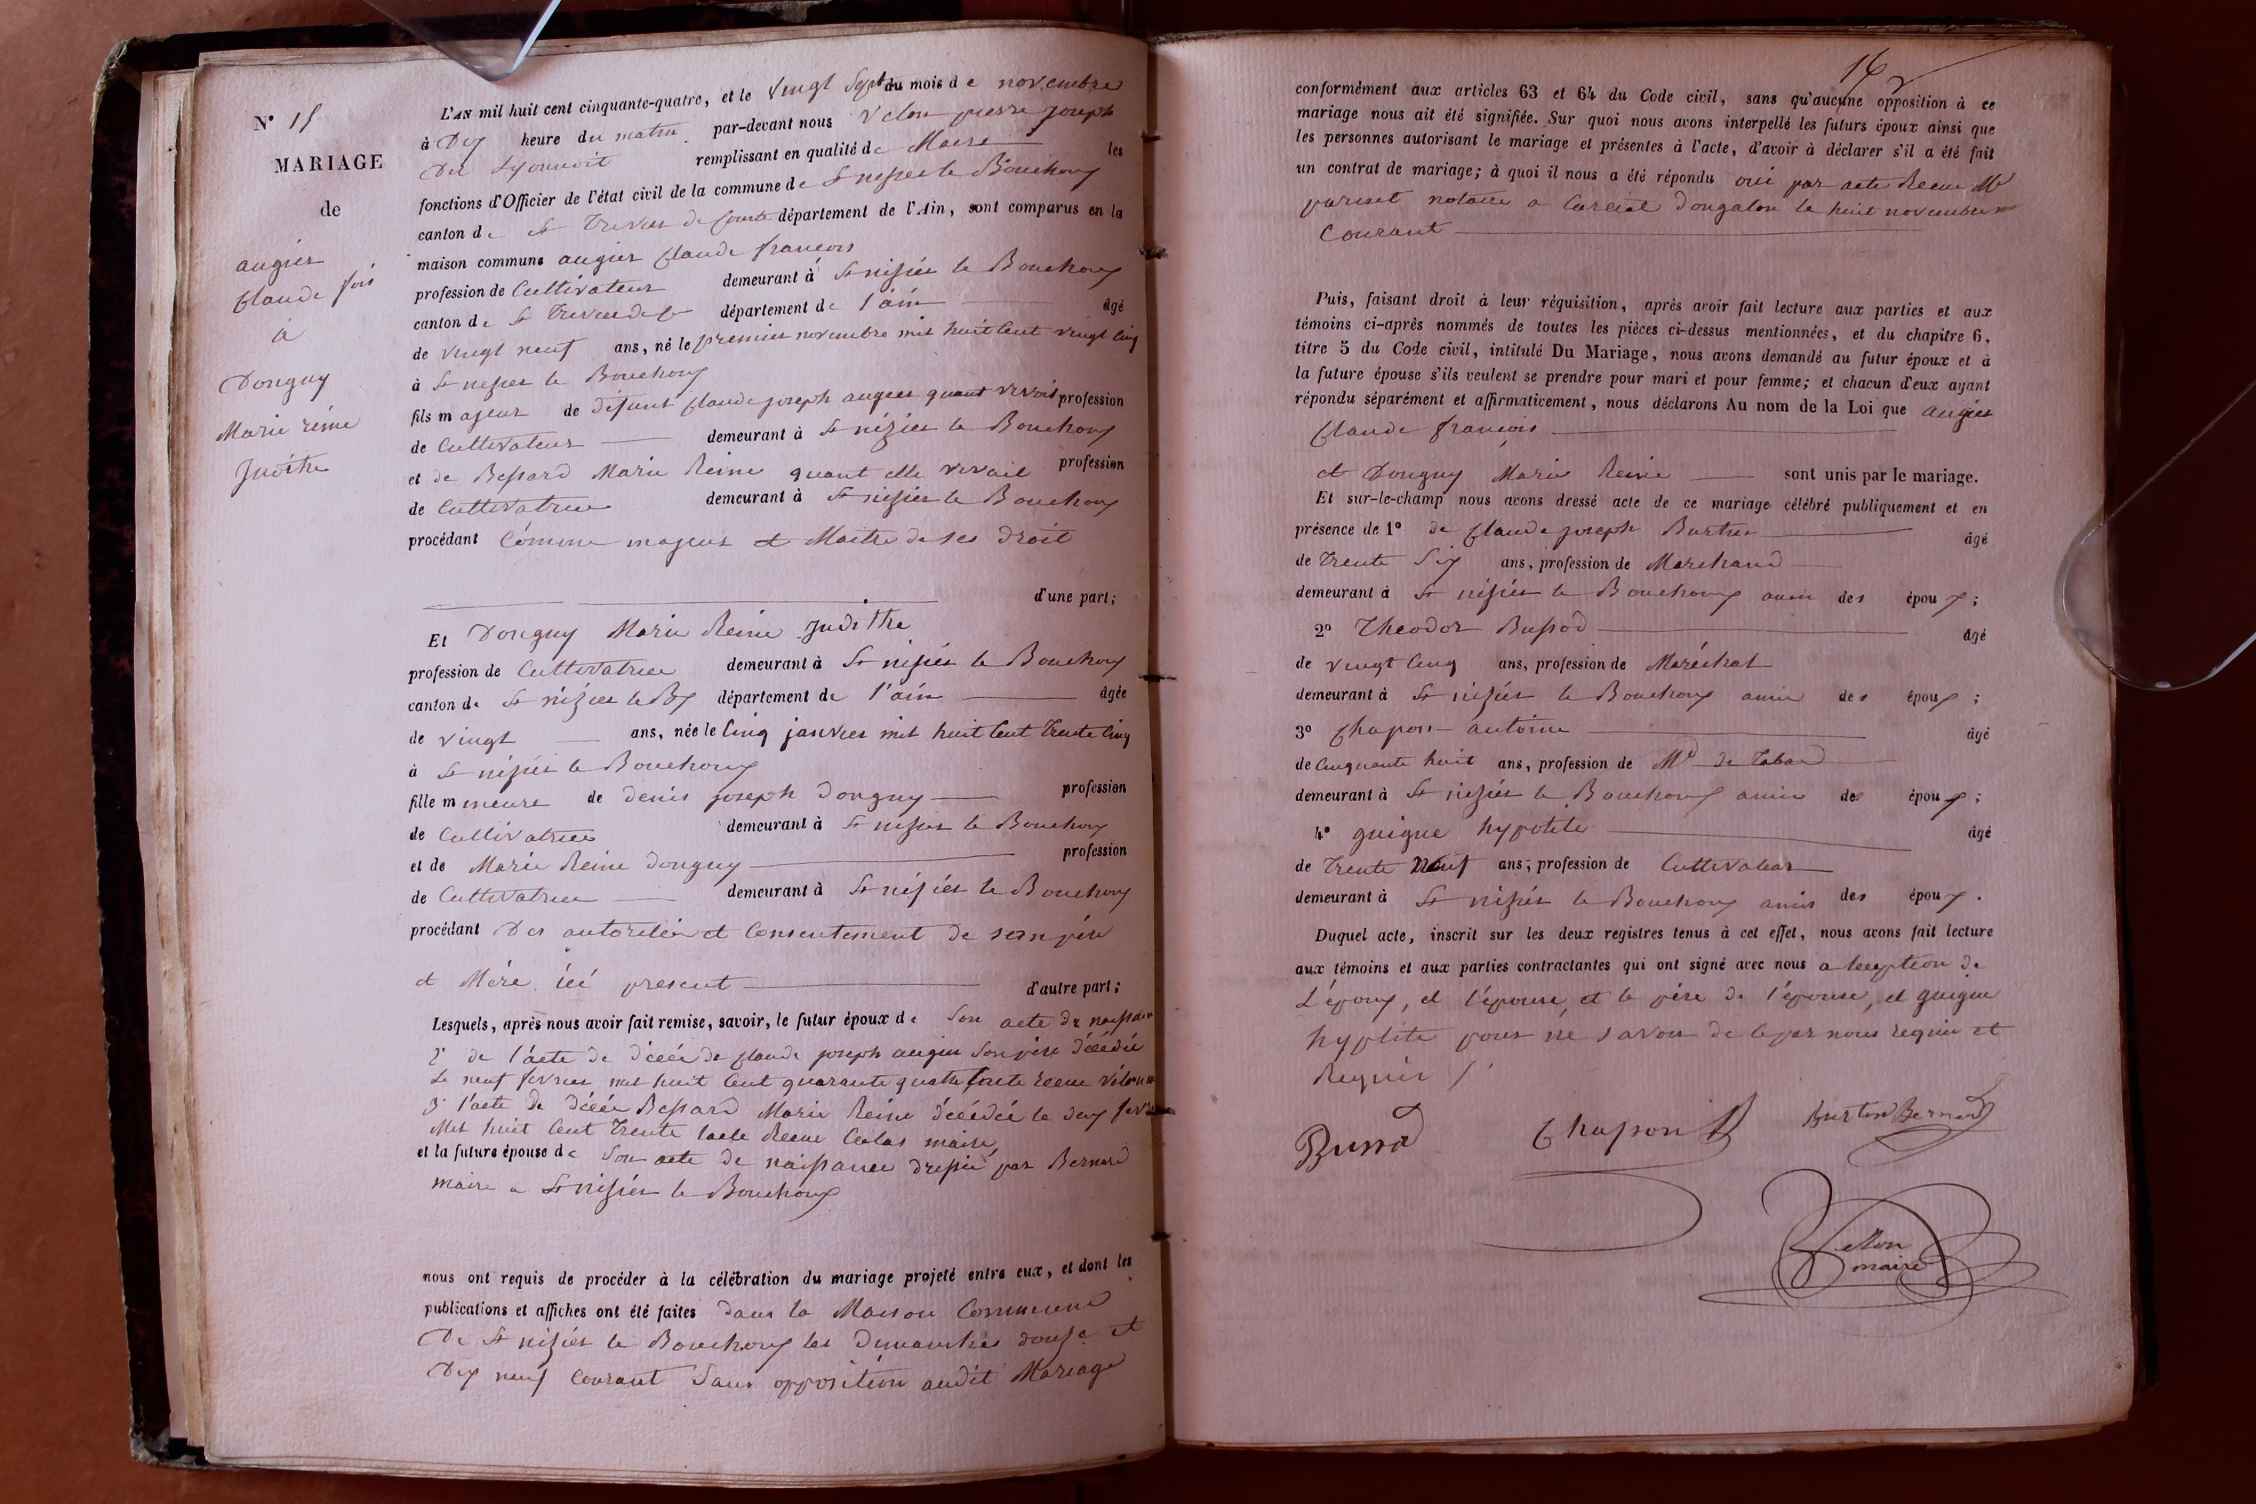 N° 15
MARIAGE
de
augier
Claude fois
à
Donguy
Marie réine
Judithe
L'AN mil huit cent cinquante-quatre, et le vingt Sept du mois de novembre
à Dix heure du matin par-devant nous Velon pierre joseph
remplissant en qualité de Maire les
fonctions d'Officier de l'état civil de la commune de St nizier le Bouchoux
canton de St Trivier de Courte département de l'Ain, sont comparus en la
maison commune augier Claude francois
profession de Cultivateur demeurant à St nizier le Bouchoux
canton de St Trivier de C département de l'ain âgé
de vingt neuf ans, né le premier novembre mil huit Cent vingt Cinq
à St nizier le Bouchoux
fils majeur de defunt Claude joseph augier quant vivoit profession
de Cultivateur demeurant à St nizier le Bouchoux
et de Bessard Marie Reine quant elle vivait profession
de Cultivatrice demeurant à St nizier le Bouchoux
procédant Comme majeur et Maitre de ses Droit
d'une part;
Et Donguy Marie Reine Judithe
profession de Cultivatrice demeurant à St nizier le Bouchoux
canton de St nizier le Bx département de l'ain âgée
de vingt ans, née le Cinq janvier mil huit Cent Trente Cinq
à St nizier le Bouchoux
fille mineure de denis joseph Donguy profession
de Cultivatrice demeurant à St nizier le Bouchoux
et de Marie Reine donguy profession
de Cultivatrice demeurant à St nizier le Bouchoux
procédant Des et Consentement de son père
et Mère ici present d'autre part;
Lesquels, après nous avoir fait remise, savoir, le futur époux de Son acte de naissan
2° de l'acte de décée de Claude joseph augier Son père décédée
Le neuf fevrier mil huit Cent quarante quatre recue
3° l'acte de décée Bessard Marie Reine décédée le deux
Mil huit Cent Trente lacte Recue maire
et la future épouse de Son acte de naissance dressée par Bernard
maire a St nizier le Bouchoux
nous ont requis de procéder à la célébration du mariage projeté entre eux, et dont les
publications et affiches ont été faites dans la Maison Commune
De St nizier le Bouchoux les Dimanches douze et
Dix neuf Courant Sans opposition audit Mariage
16
conformément aux articles 63 et 64 du Code civil, sans qu'aucune opposition à ce
mariage nous ait été signifiée. Sur quoi nous avons interpellé les futurs époux ainsi que
les personnes autorisant le mariage et présentes à l'acte, d'avoir à déclarer s'il a été fait
un contrat de mariage; à quoi il nous a été répondu oui par acte Recue Me
notaire a le huit novembre
Courant
Puis, faisant droit à leur réquisition, après avoir fait lecture aux parties et aux
témoins ci-après nommés de toutes les pièces ci-dessus mentionnées, et du chapitre 6,
titre 5 du Code civil, intitulé Du Mariage, nous avons demandé au futur époux et à
la future épouse s'ils veulent se prendre pour mari et pour femme; et chacun d'eux ayant
répondu séparément et affirmativement, nous déclarons Au nom de la Loi que augier
Claude francois
et Donguy Marie Reine sont unis par le mariage.
Et sur-le-champ nous avons dressé acte de ce mariage célébré publiquement et en
présence de 1° de Claude joseph âgé
de Trente Six ans, profession de Marchand
demeurant à St nizier le Bouchoux amis des époux;
2° Theodor Bussod âgé
de vingt Cinq ans, profession de Maréchal
demeurant à St nizier le Bouchoux amis des époux;
3° Chapon antoine âgé
de Cinquante huit ans, profession de Md de Tabac
demeurant à St nizier le Bouchoux amis des époux;
4° guigue hypolite âgé
de Trente Neuf ans, profession de Cultivateur
demeurant à St nizier le Bouchoux amis des époux.
Duquel acte, inscrit sur les deux registres tenus à cet effet, nous avons fait lecture
aux témoins et aux parties contractantes qui ont signé avec nous a lexeption de
L'époux, et l'épouse, et le père de l'épouse, et guigue
hyplite pour ne savoir de par nous requis et
Requis
Chapon
Vellon
maire